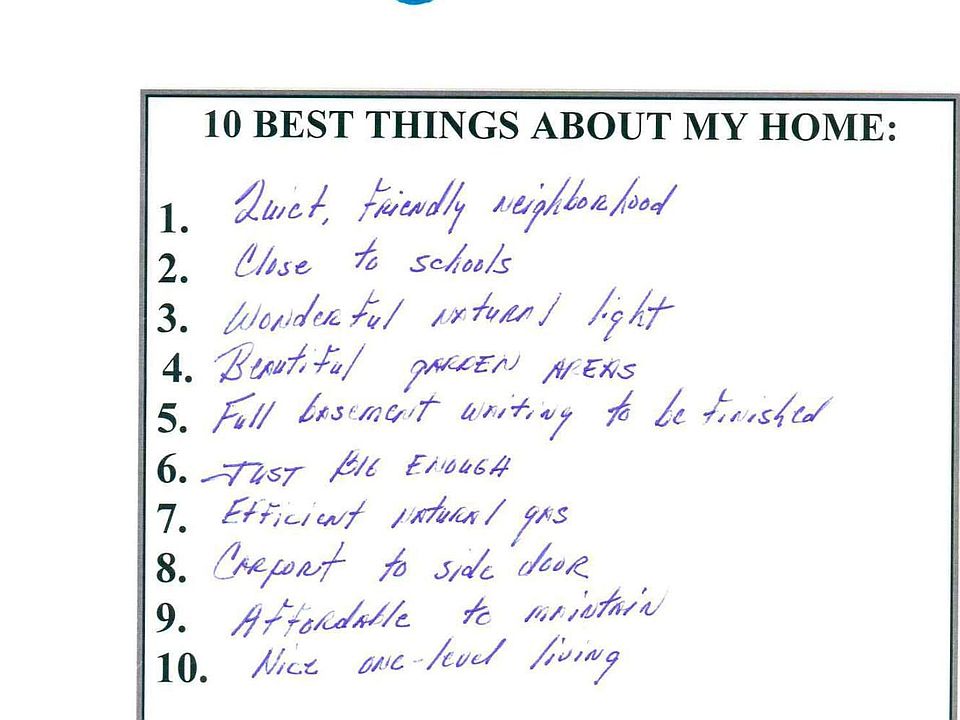 10 BEST THINGS ABOUT MY HOME:
1. Quiet, friendly neighborhood
2. Close to schools
3. Wonderful natural light
4. Beautiful GARDEN AREAS
5. Full basement waiting to be finished
6. JUST BIG ENOUGH
7. Efficient natural gas
8. Carport to side door
9. Affordable to maintain
10. Nice one-level living